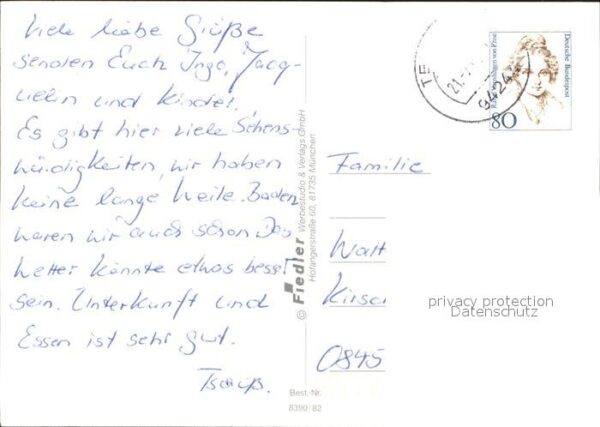 Viele liebe Grüße
senden Euch Ingo, Jacq-
uelin und Kinder.
Es gibt hier viele Sehens-
würdigkeiten, wir haben
keine lange Weile. Baden
waren wir auch schon Das
Wetter könnte etwas besser
sein. Unterkunft und
Essen ist sehr gut.
Tschüß.
© Fiedler Werbestudio & Verlags GmbH
Hofangerstraße 60, 81735 München
Best.-Nr.
8390/82
Deutsche Bundespost
80
21.
9424
Familie
Watt
Kirsc
0845
privacy protection
Datenschutz